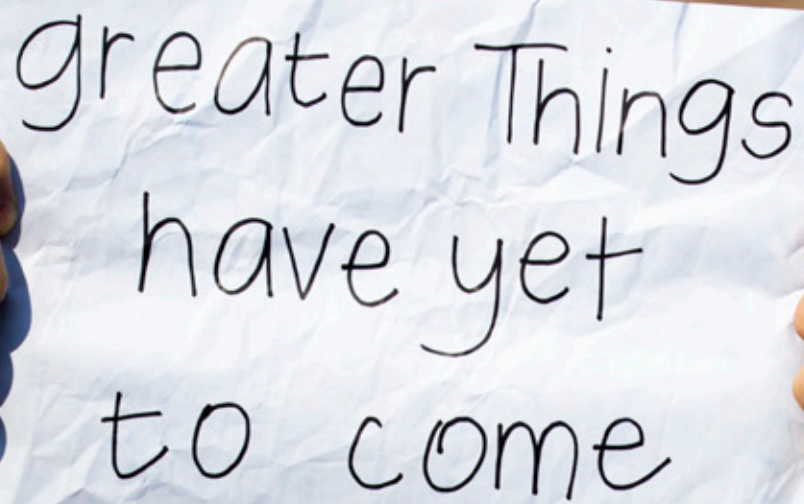 greater Things
have yet
to come